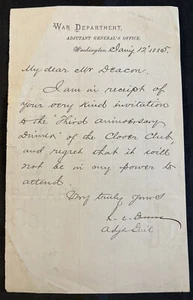 WAR DEPARTMENT,
ADJUTANT GENERAL'S OFFICE,
Washington Jany 12" 1885
My dear Mr Deacon.
I am in receipt of
your very kind invitation
to the "Third anniversary
Dinner" of the Clover Club,
and regret that it will
not be in my power to
attend.
Very truly yours
R. C. Drum
Adjt Genl